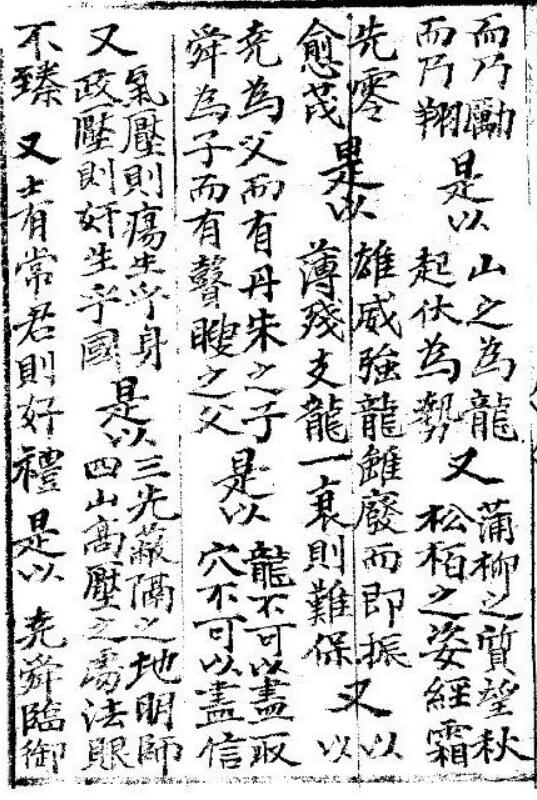 而乃勵
而乃翔
是以
山之為龍
起伏為勢
又
蒲柳之質望秋
松栢之姿經霜
先零
愈茂
是以
雄威強龍雖廢而即振
薄殘支龍一衰則難保
又
以
以
堯為父而有丹朱之子
舜為子而有瞽瞍之父
是以
龍不可以盡取
穴不可以盡信
又
氣壓則瘍生乎身
政壓則奸生乎國
是以
三光蔽隔之地明師
四山高壓之塲法眼
不臻 又 士有常君則好禮 是以 堯舜臨御